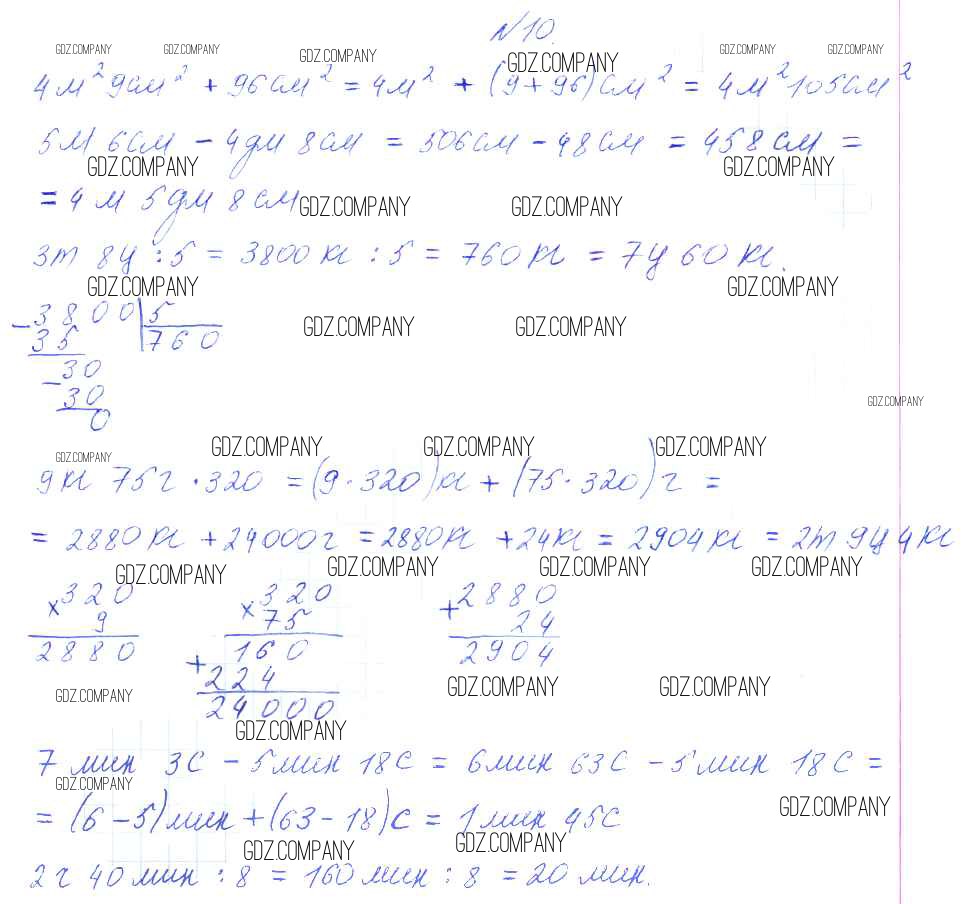 №10.
GDZ.COMPANY GDZ.COMPANY GDZ.COMPANY GDZ.COMPANY GDZ.COMPANY GDZ.COMPANY
4м² 9см² + 96см² = 4м² + (9+96)см² = 4м² 105см²
5м 6см - 4дм 8см = 506см - 48см = 458см =
GDZ.COMPANY GDZ.COMPANY
= 4м 5дм 8см
GDZ.COMPANY GDZ.COMPANY
3т 8ц : 5 = 3800кг : 5 = 760кг = 7ц 60кг.
GDZ.COMPANY GDZ.COMPANY
- 3800 | 5
35 760
GDZ.COMPANY GDZ.COMPANY
- 30
30
0
GDZ.COMPANY
GDZ.COMPANY GDZ.COMPANY GDZ.COMPANY GDZ.COMPANY
9кг 75г · 320 = (9 · 320)кг + (75 · 320)г =
= 2880кг + 24000г = 2880кг + 24кг = 2904кг = 2т 9ц 4кг
GDZ.COMPANY GDZ.COMPANY GDZ.COMPANY GDZ.COMPANY
x 320 x 320 + 2880
9 75 24
2880 160 2904
+ 224
GDZ.COMPANY GDZ.COMPANY GDZ.COMPANY
24000
GDZ.COMPANY
7 мин 3с - 5мин 18с = 6мин 63с - 5мин 18с =
GDZ.COMPANY
= (6-5)мин + (63-18)с = 1мин 45с
GDZ.COMPANY
GDZ.COMPANY GDZ.COMPANY
2ч 40мин : 8 = 160мин : 8 = 20мин.